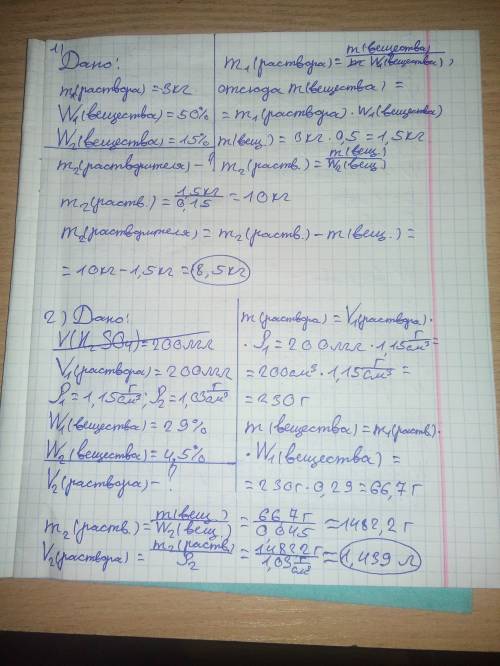 1)
Дано:
m₁(раствора)=3кг
W₁(вещества)=50%
W₂(вещества)=15%
m₂(растворителя)-?
m₁(раствора)=m(вещества)/W₁(вещества),
отсюда m(вещества)=
=m₁(раствора)·W₁(вещества)
m(вещ.)=3кг·0,5=1,5кг
m₂(раств.)=m(вещ.)/W₂(вещ.)
m₂(раств.)=1,5кг/0,15=10кг
m₂(растворителя)=m₂(раств.)-m(вещ.)=
=10кг-1,5кг=8,5кг
2) Дано:
V(H₂SO₄)=200мл
V₁(раствора)=200мл
ρ₁=1,15г/см³; ρ₂=1,03г/см³
W₁(вещества)=29%
W₂(вещества)=4,5%
V₂(раствора)-?
m(раствора)=V₁(раствора)·
·ρ₁=200мл·1,15г/см³=
=200см³·1,15г/см³=
=230г
m(вещества)=m₁(раств.)·
·W₁(вещества)=
=230г·0,29=66,7г
m₂(раств.)=m(вещ.)/W₂(вещ.)=66,7г/0,045≈1482,2г
V₂(раствора)=m₂(раств.)/ρ₂=1482,2г/1,03г/см³≈1,439л